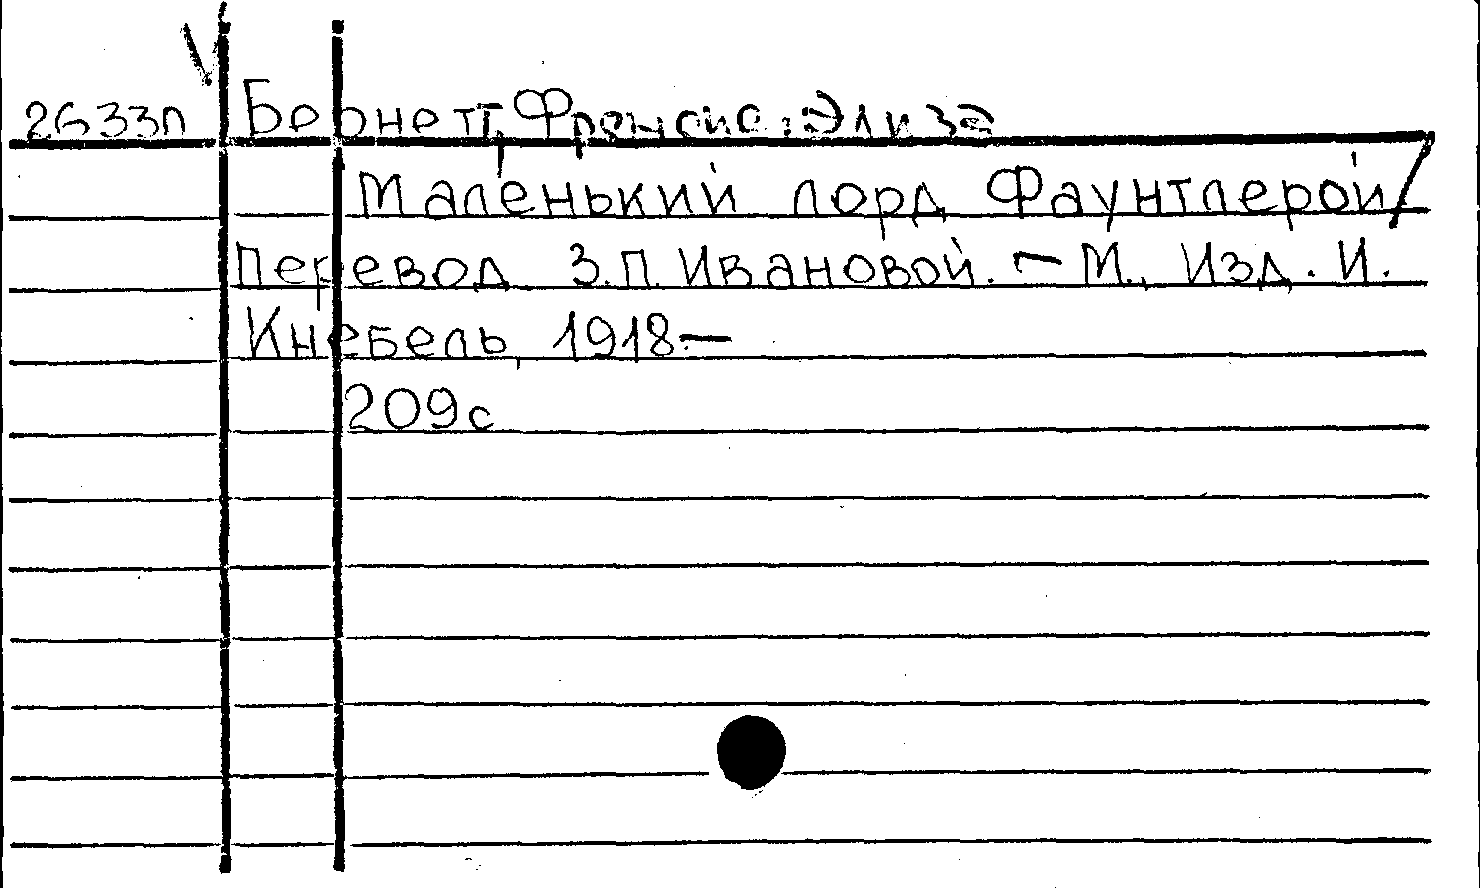 2633л Бернетт, Френсис Элиза
Маленький лорд Фаунтлерой/
Перевод З.П. Ивановой. — М., Изд. И.
Кнебель, 1918 —
209с